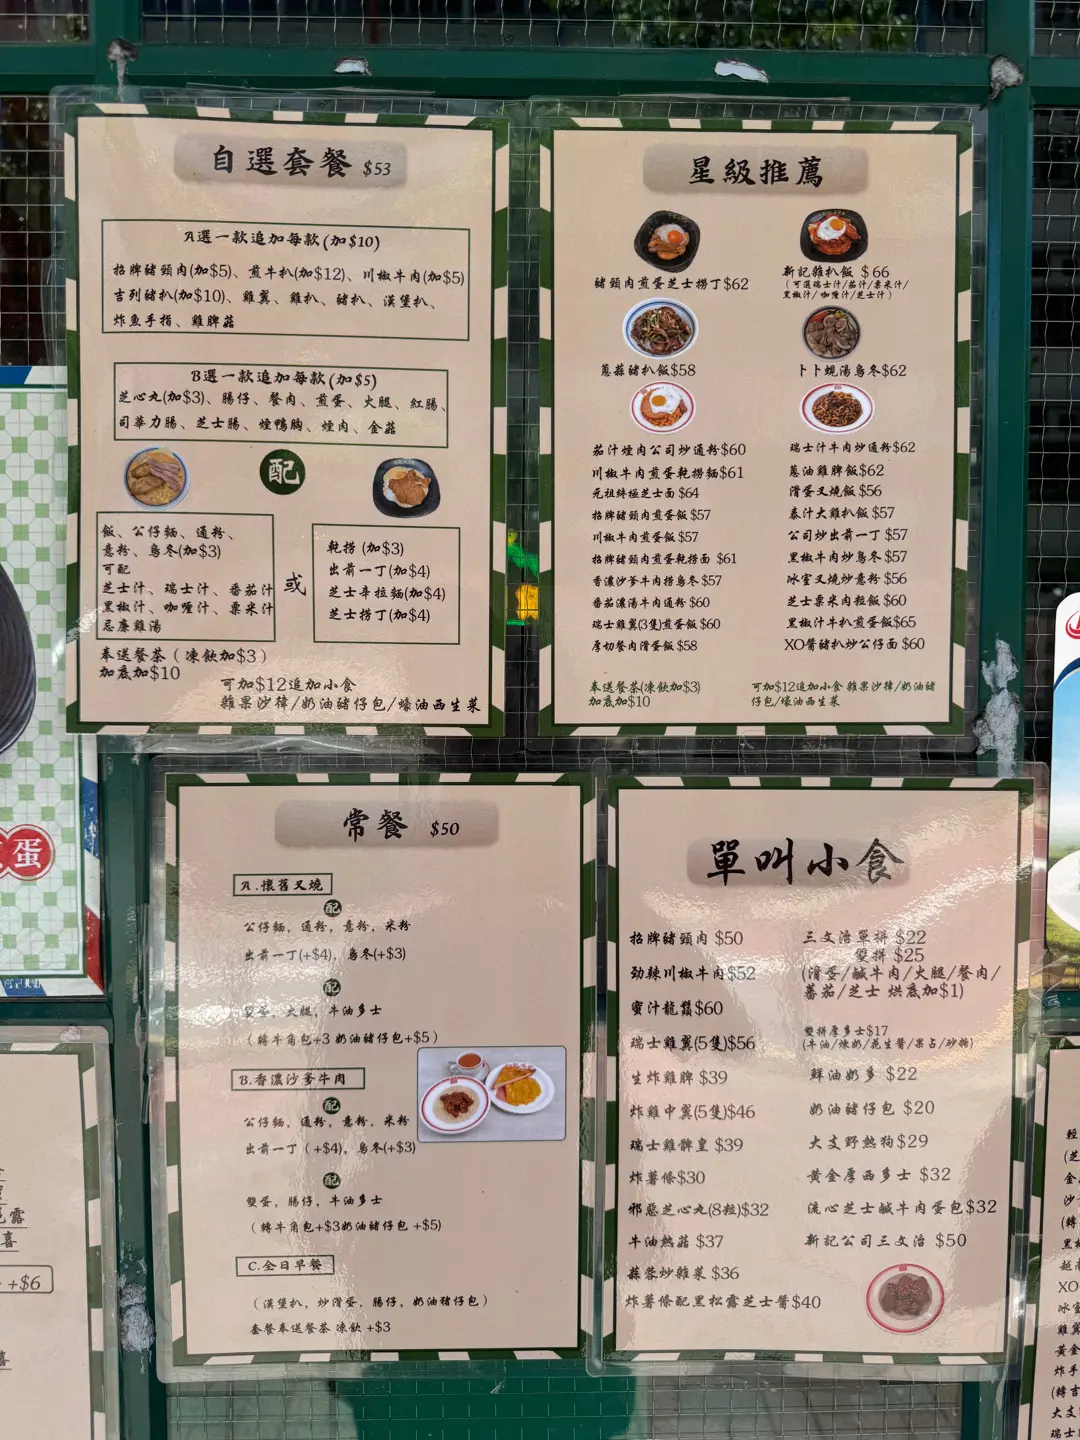 自選套餐 $53
A選一款追加每款(加$10)
招牌豬頸肉(加$5)、煎牛扒(加$12)、川椒牛肉(加$5)
吉列豬扒(加$10)、雞翼、雞扒、豬扒、漢堡扒、
炸魚手指、雞脾菇
B選一款追加每款(加$5)
芝心丸(加$3)、腸仔、餐肉、煎蛋、火腿、紅腸、
司華力腸、芝士腸、煙鴨胸、煙肉、金菇
配
飯、公仔麵、通粉、
意粉、烏冬(加$3)
可配
芝士汁、瑞士汁、番茄汁
黑椒汁、咖喱汁、粟米汁
忌廉雞湯
或
乾撈 (加$3)
出前一丁(加$4)
芝士辛拉麵(加$4)
芝士撈丁(加$4)
奉送餐茶 ( 凍飲加$3 )
加底加$10
可加$12追加小食
雜果沙律/奶油豬仔包/蠔油西生菜
星級推薦
豬頸肉煎蛋芝士撈丁$62
新記雜扒飯 $66
( 可選瑞士汁/茄汁/粟米汁/
黑椒汁/咖喱汁/芝士汁 )
蔥蒜豬扒飯$58
卜卜蜆湯烏冬$62
茄汁煙肉公司炒通粉$60
川椒牛肉煎蛋乾撈麵$61
元祖終極芝士面 $64
招牌豬頸肉煎蛋飯 $57
川椒牛肉煎蛋飯 $57
招牌豬頸肉煎蛋乾撈面 $61
香濃沙爹牛肉撈烏冬$57
番茄濃湯牛肉通粉 $60
瑞士雞翼(3隻)煎蛋飯 $60
厚切餐肉滑蛋飯 $58
瑞士汁牛肉炒通粉$62
蔥油雞脾飯$62
滑蛋叉燒飯 $56
泰汁大雞扒飯 $57
公司炒出前一丁 $57
黑椒牛肉炒烏冬 $57
冰室叉燒炒意粉 $56
芝士粟米肉粒飯 $60
黑椒汁牛扒煎蛋飯$65
XO醬豬扒炒公仔面 $60
奉送餐茶(凍飲加$3)
加底加$10
可加$12追加小食 雜果沙律/奶油豬
仔包/蠔油西生菜
常餐 $50
A.懷舊叉燒
配
公仔麵, 通粉, 意粉, 米粉
出前一丁(+$4), 烏冬(+$3)
配
雙蛋, 火腿, 牛油多士
( 轉牛角包+3 奶油豬仔包+$5 )
B.香濃沙爹牛肉
配
公仔麵, 通粉, 意粉, 米粉
出前一丁 ( +$4), 烏冬(+$3)
配
雙蛋, 腸仔, 牛油多士
( 轉牛角包+$3奶油豬仔包 +$5)
C.全日早餐
( 漢堡扒, 炒滑蛋, 腸仔, 奶油豬仔包 )
套餐奉送餐茶 凍飲 +$3
單叫小食
招牌豬頸肉 $50
勁辣川椒牛肉$52
蜜汁龍鬚$60
瑞士雞翼(5隻)$56
生炸雞脾 $39
炸雞中翼(5隻)$46
瑞士雞髀皇 $39
炸薯條$30
邪惡芝心丸(8粒)$32
牛油熱菇 $37
蒜蓉炒雜菜 $36
炸薯條配黑松露芝士醬$40
三文治單拼 $22
雙拼 $25
(滑蛋/鹹牛肉/火腿/餐肉/
蕃茄/芝士 烘底加$1)
雙拼厚多士$17
(牛油/煉奶/花生醬/果占/砂糖)
鮮油奶多 $22
奶油豬仔包 $20
大支野熱狗$29
黃金厚西多士 $32
流心芝士鹹牛肉蛋包$32
新記公司三文治 $50
蛋
露
+$6